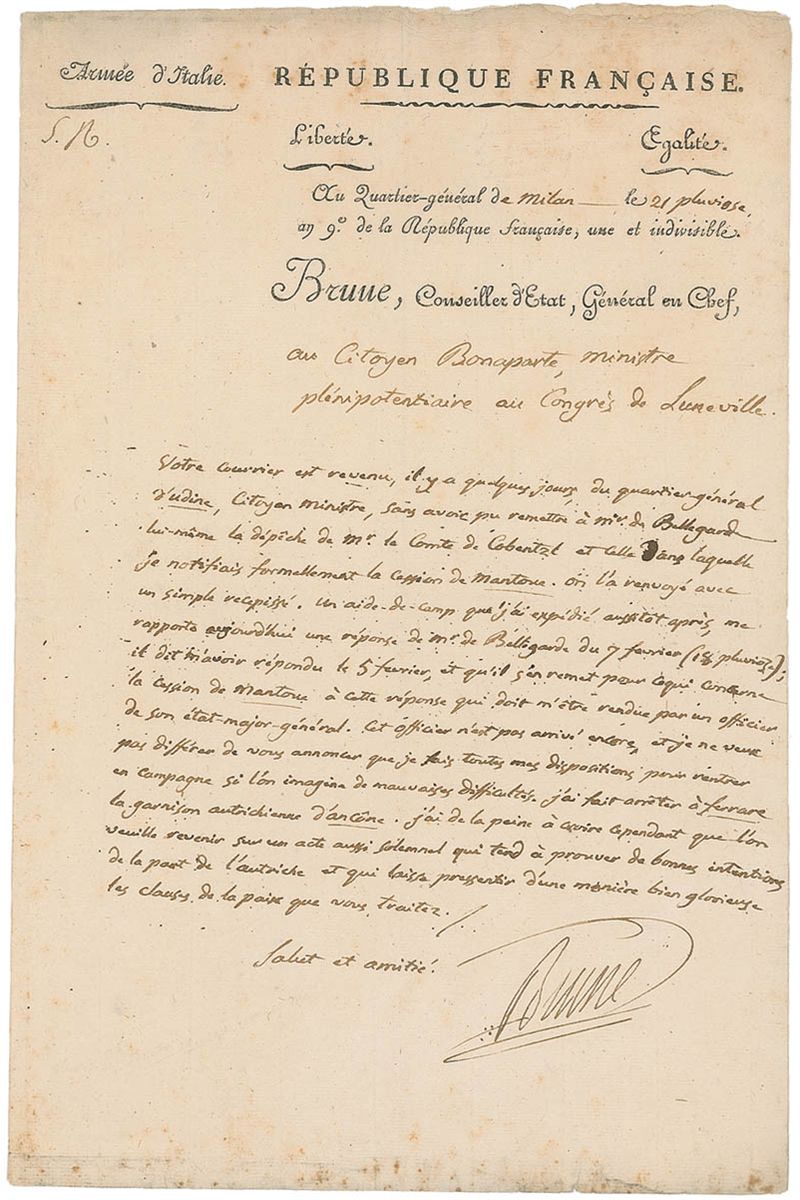 Armée d'Italie.
RÉPUBLIQUE FRANÇAISE.
S. R.
Liberté.
Egalité.
Au Quartier-général de Milan le 21 pluviose,
an 9.e de la République française, une et indivisible.
Brune, Conseiller d'Etat, Général en Chef,
au Citoyen Bonaparte, ministre
plénipotentiaire au Congrès de Luneville.
Votre courrier est revenu, il y a quelques jours, du quartier-général
d'udine, Citoyen ministre, sans avoir pu remettre à mr. de Bellegarde
lui-même la dépêche de mr. le Comte de Cobentzl et celle dans laquelle
je notifiais formellement la cession de Mantoue. on l'a renvoyé avec
un simple recepissé. un aide-de-camp que j'ai expédié aussitôt après, me
rapporte aujourd'hui une réponse de mr. de Bellegarde du 7 fevrier (18 pluviose);
il dit m'avoir répondu le 5 fevrier, et qu'il s'en remet pour ce qui concerne
la cession de Mantoue à cette réponse qui doit m'être rendue par un officier
de son état-major-général. Cet officier n'est pas arrivé encore, et je ne veux
pas différer de vous annoncer que je fais toutes mes dispositions pour rentrer
en campagne si l'on imagine de mauvaises difficultés. j'ai fait arrêter à ferrare
la garnison autrichienne d'ancône. j'ai de la peine à croire cependant que l'on
veuille revenir sur un acte aussi solemnel qui tend à prouver de bonnes intentions
de la part de l'autriche et qui laisse pressentir d'une manière bien glorieuse
les clauses de la paix que vous traitez.
Salut et amitié.
Brune